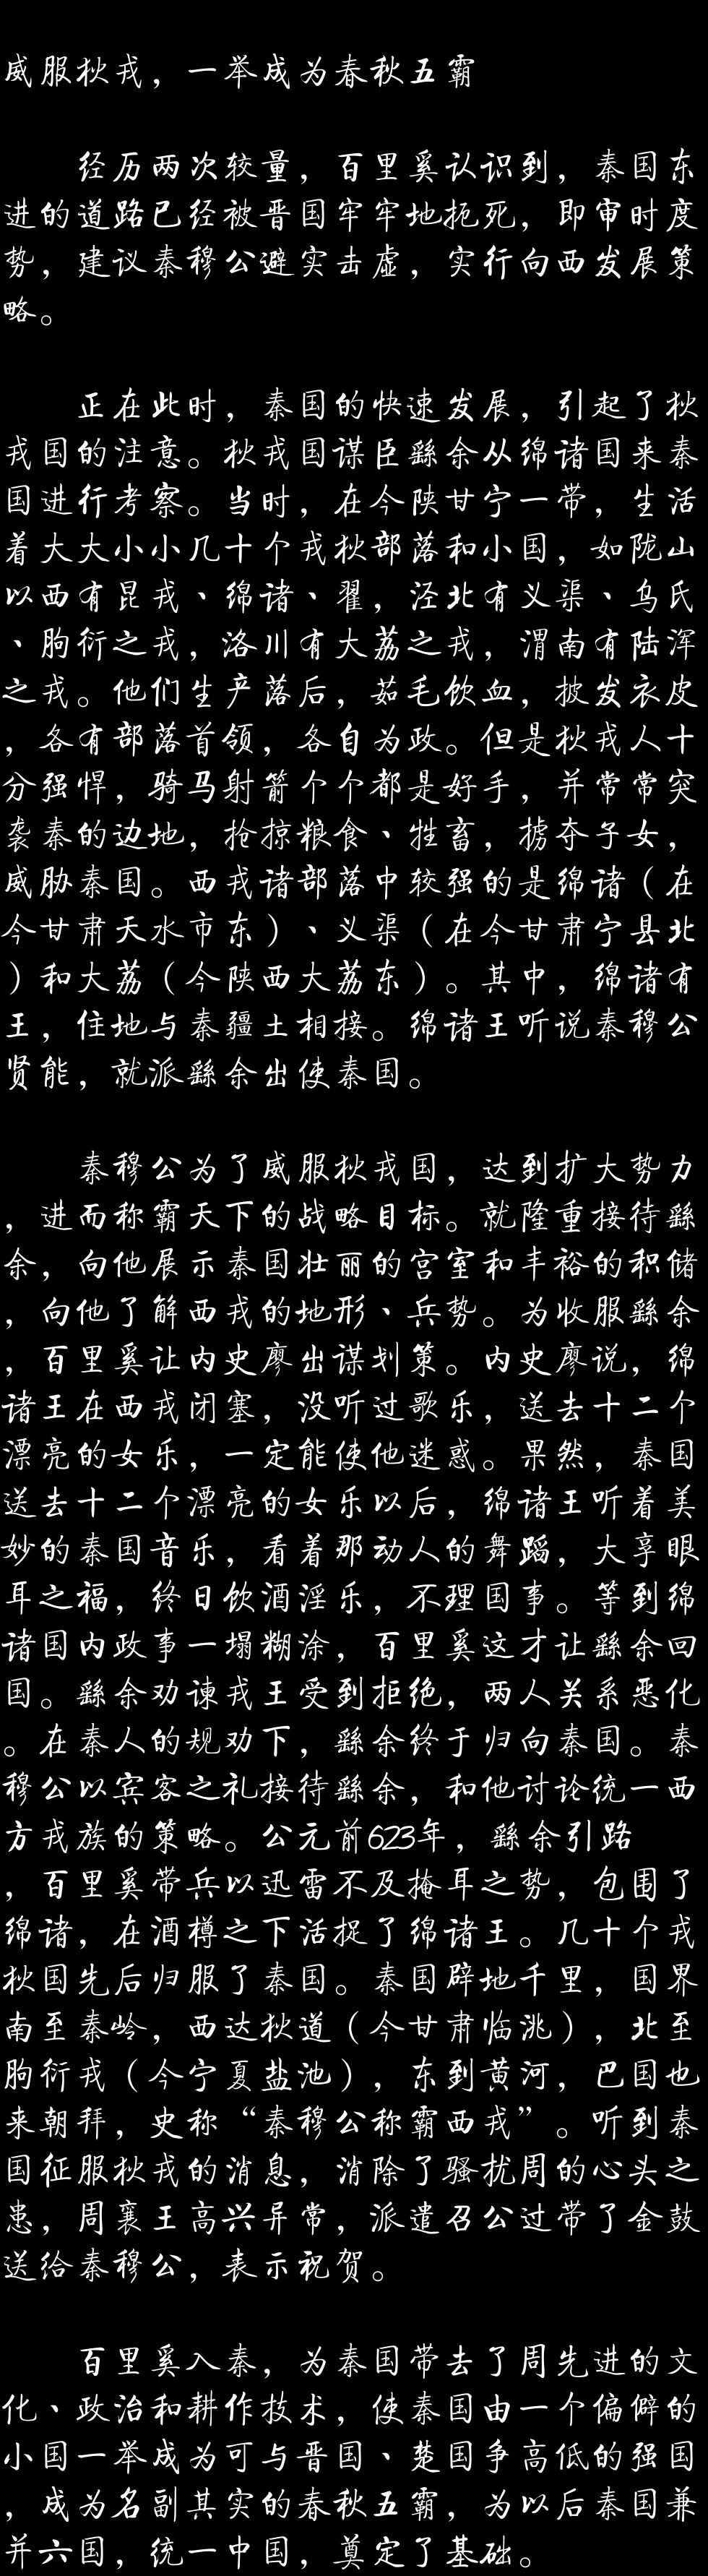 威服狄戎，一举成为春秋五霸
经历两次较量，百里奚认识到，秦国东
进的道路已经被晋国牢牢地扼死，即审时度
势，建议秦穆公避实击虚，实行向西发展策
略。
正在此时，秦国的快速发展，引起了狄
戎国的注意。狄戎国谋臣繇余从绵诸国来秦
国进行考察。当时，在今陕甘宁一带，生活
着大大小小几十个戎狄部落和小国，如陇山
以西有昆戎、绵诸、翟，泾北有义渠、乌氏
、朐衍之戎，洛川有大荔之戎，渭南有陆浑
之戎。他们生产落后，茹毛饮血，披发衣皮
，各有部落首领，各自为政。但是狄戎人十
分强悍，骑马射箭个个都是好手，并常常突
袭秦的边地，抢掠粮食、牲畜，掳夺子女，
威胁秦国。西戎诸部落中较强的是绵诸（在
今甘肃天水市东）、义渠（在今甘肃宁县北
）和大荔（今陕西大荔东）。其中，绵诸有
王，住地与秦疆土相接。绵诸王听说秦穆公
贤能，就派繇余出使秦国。
秦穆公为了威服狄戎国，达到扩大势力
，进而称霸天下的战略目标。就隆重接待繇
余，向他展示秦国壮丽的宫室和丰裕的积储
，向他了解西戎的地形、兵势。为收服繇余
，百里奚让内史廖出谋划策。内史廖说，绵
诸王在西戎闭塞，没听过歌乐，送去十二个
漂亮的女乐，一定能使他迷惑。果然，秦国
送去十二个漂亮的女乐以后，绵诸王听着美
妙的秦国音乐，看着那动人的舞蹈，大享眼
耳之福，终日饮酒淫乐，不理国事。等到绵
诸国内政事一塌糊涂，百里奚这才让繇余回
国。繇余劝谏戎王受到拒绝，两人关系恶化
。在秦人的规劝下，繇余终于归向秦国。秦
穆公以宾客之礼接待繇余，和他讨论统一西
方戎族的策略。公元前623年，繇余引路
，百里奚带兵以迅雷不及掩耳之势，包围了
绵诸，在酒樽之下活捉了绵诸王。几十个戎
狄国先后归服了秦国。秦国辟地千里，国界
南至秦岭，西达狄道（今甘肃临洮），北至
朐衍戎（今宁夏盐池），东到黄河，巴国也
来朝拜，史称“秦穆公称霸西戎”。听到秦
国征服狄戎的消息，消除了骚扰周的心头之
患，周襄王高兴异常，派遣召公过带了金鼓
送给秦穆公，表示祝贺。
百里奚入秦，为秦国带去了周先进的文
化、政治和耕作技术，使秦国由一个偏僻的
小国一举成为可与晋国、楚国争高低的强国
，成为名副其实的春秋五霸，为以后秦国兼
并六国，统一中国，奠定了基础。